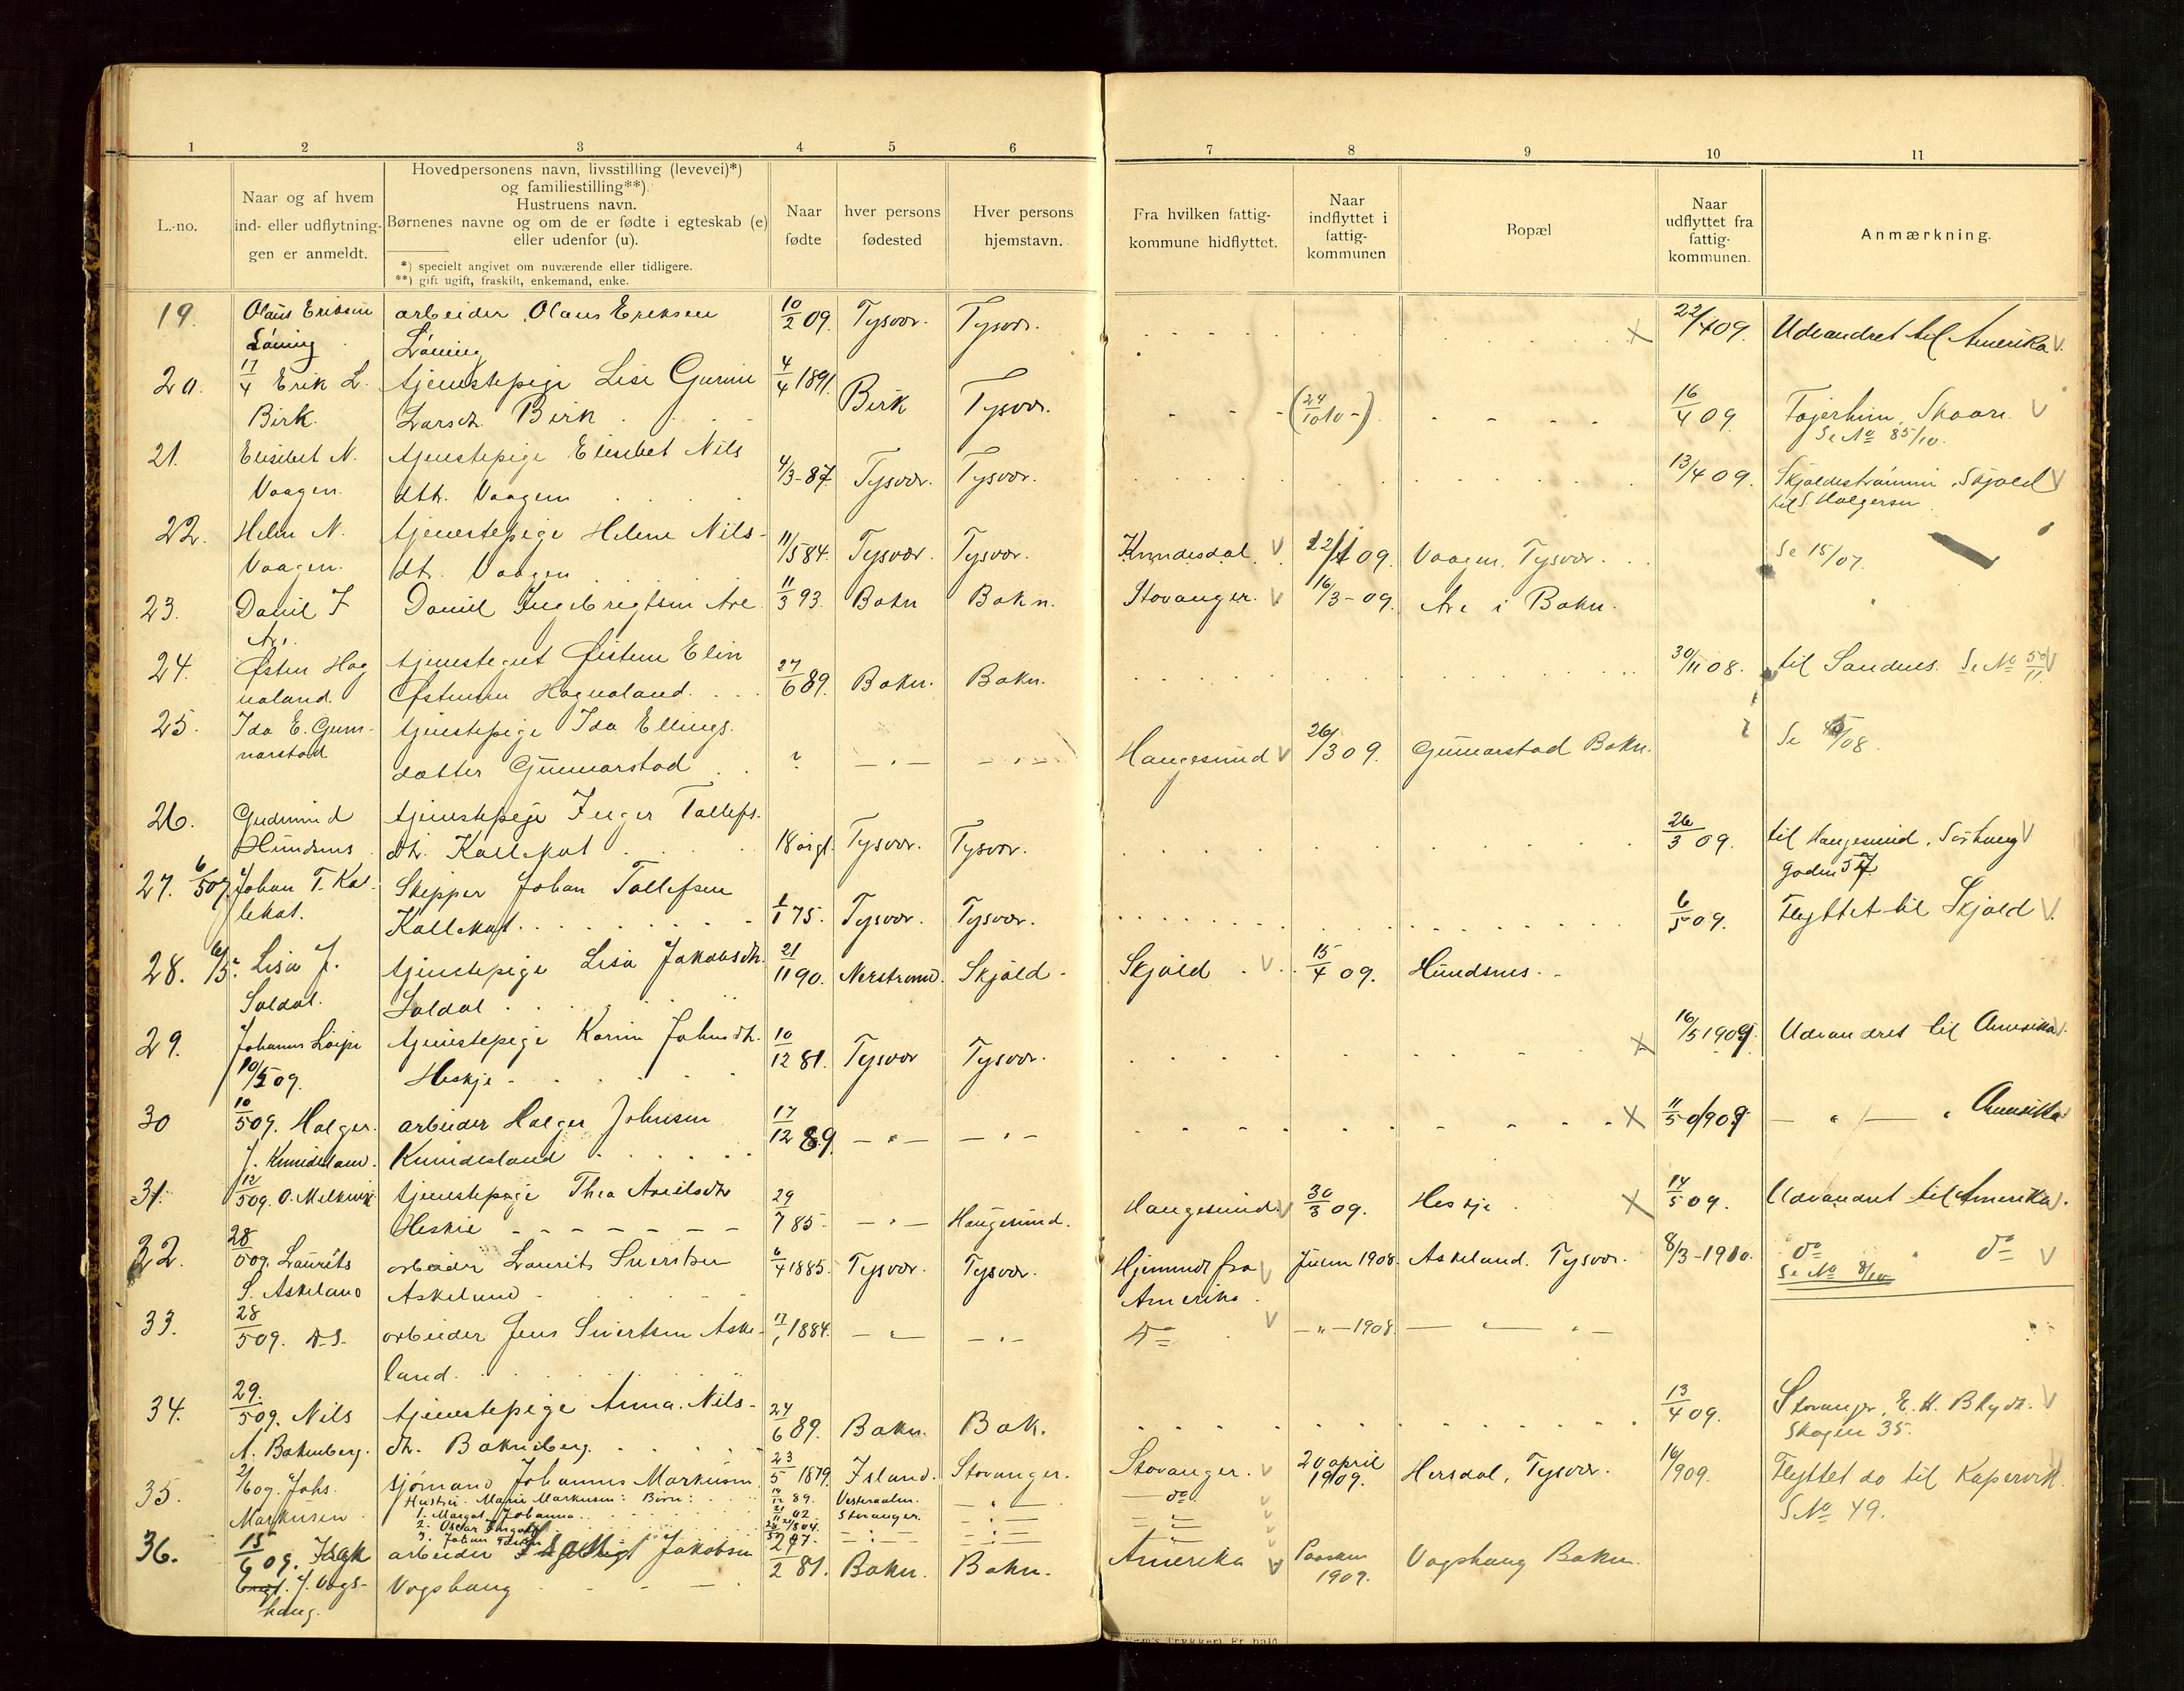 1 2 3 4 5 6 7 8 9 10 11
L.-no.
Naar og af hvem
ind- eller udflytning-
gen er anmeldt.
Hovedpersonens navn, livsstilling (levevei)*)
og familiestilling**)
Hustruens navn.
Børnenes navne og om de er fødte i egteskab (e)
eller udenfor (u).
*) specielt angivet om nuværende eller tidligere.
**) gift ugift, fraskilt, enkemand, enke.
Naar
fødte
hver persons
fødested
Hver persons
hjemstavn.
Fra hvilken fattig-
kommune hidflyttet.
Naar
indflyttet i
fattig-
kommunen
Bopæl
Naar
udflyttet fra
fattig-
kommunen.
Anmærkning.
19. Olaus Eriksen arbeider Olaus Eriksen 10/2 09. Tysvær. Tysvær. 22/4 09. Udvandret til Amerika
Löning Löning
20. 17/4 Erik L. tjenestepige Lise Gurine 4/4 1891. Birk Tysvær. (24/10 10-) 16/4 09 Skaare
Birk. Larsdt. Birk Se No 85/10.
21. Elisebet N. tjenestepige Elisebet Nils 4/3-87 Tysvær. Tysvær. 13/4 09. Skjoldestraumen, Skjold
Vaagen. dtt. Vaagen til S. Halgersen
22. Helene N. tjenestepige Helene Nils- 11/5 84. Tysvær. Tysvær. 12/1 09 Vaagen, Tysvær. Se 15/07
Vaagen. dt. Vaagen
23. Daniel I Daniel Ingebrigtsen Are 11/3 93. Bokn Bokn. Stavanger. 16/3-09. Are i Bokn.
Are.
24. Østen Hog tjenestegut Østen Elin 27/6 89. Bokn. Bokn. 30/11 08. til Sandnes. Se No 50/11
naland. Østensen Hognaland.
25. Ida E. Gun- tjenestepige Ida Ellings. ? — " — — " — Haugesund 26/3 09. Gunnarstad Bokn. ? Se /08.
narstad datter Gunnarstad
26. Gudmund tjenestepige Inger Tollefs. 18 aar gl. Tysvær. Tysvær. 26/3 09. til Haugesund, Sörhaug
Hundsnes dt. Kallekot gaden 57
27. 6/5 09. Johan T. Kal Skipper Johan Tollefsen 1/1 75. Tysvær. Tysvær. 6/5 09. Flyttet til Skjold
lekot. Kallekot
28. 6/5. Lisa J. tjenestepige Lisa Jakobsdt. 21/11 90. Nerstrand. Skjold. Skjold 15/4 09. Hundsnes.
Soldal. Soldal
29. Johannes tjenestepige Karin Johnsdt. 10/12 81. Tysvær Tysvær. 16/5 1909. Udvandret til Amerika
10/5 09. Heskje
30 10/5 09. Holger. arbeider Holger Johnsen 17/12 89 — " — — " — 11/5 1909 — " — " Amerika
J. Knudesland. Knudesland
31. 12/5 09. O. Melkevik tjenestepige Thea Aneilsdtr 29/7 85. — " — Haugesund. Haugesund 30/3 09. Heskje 14/5 09. Udvandret til Amerika.
Heskje
32. 28/5 09. Laurits arbeider Laurits Sivertsen 6/4 1885. Tysvær. Tysvær. Hjemvendt fra Juleen 1908. Askeland. Tysvær. 8/3-1910. do " do
S. Askeland Askeland Amerika. Se No 8/10
33. 28/5 09. D.S. arbeider Jens Sivertsen Aske- 17/1 1884. — " — — " — Do — " — 1908. — " — " —
land.
34. 29./5 09. Nils tjenestepige Anna Nils- 24/6 89. Bokn. Bok. 13/4 09. Stavanger, E. H. Blydt.
A. Boknberg. dt. Boknberg. Skagen 35.
35. 2/6 09. Johs. sjømand Johannes Markusen 23/5 1879. Island. Stavanger. Stavanger. 20 april Hersdal, Tysvær. 16/1909. Flyttet do til Kopervik.
Markusen Hustru. Marie Markusen: Børn: 89. Vesteraalen. — " — — do 1909. S No 49.
1. Margot Johanna 02. Stavanger. — " —
2. Oscar
3. Johan
36. 15/6 09. Isak arbeider Jakobsen 2/2 81. Bokn. Bokn. Amerika Paasken Vogshaug Bokn.
J. Vogs- Vogshaug 1909.
haug.